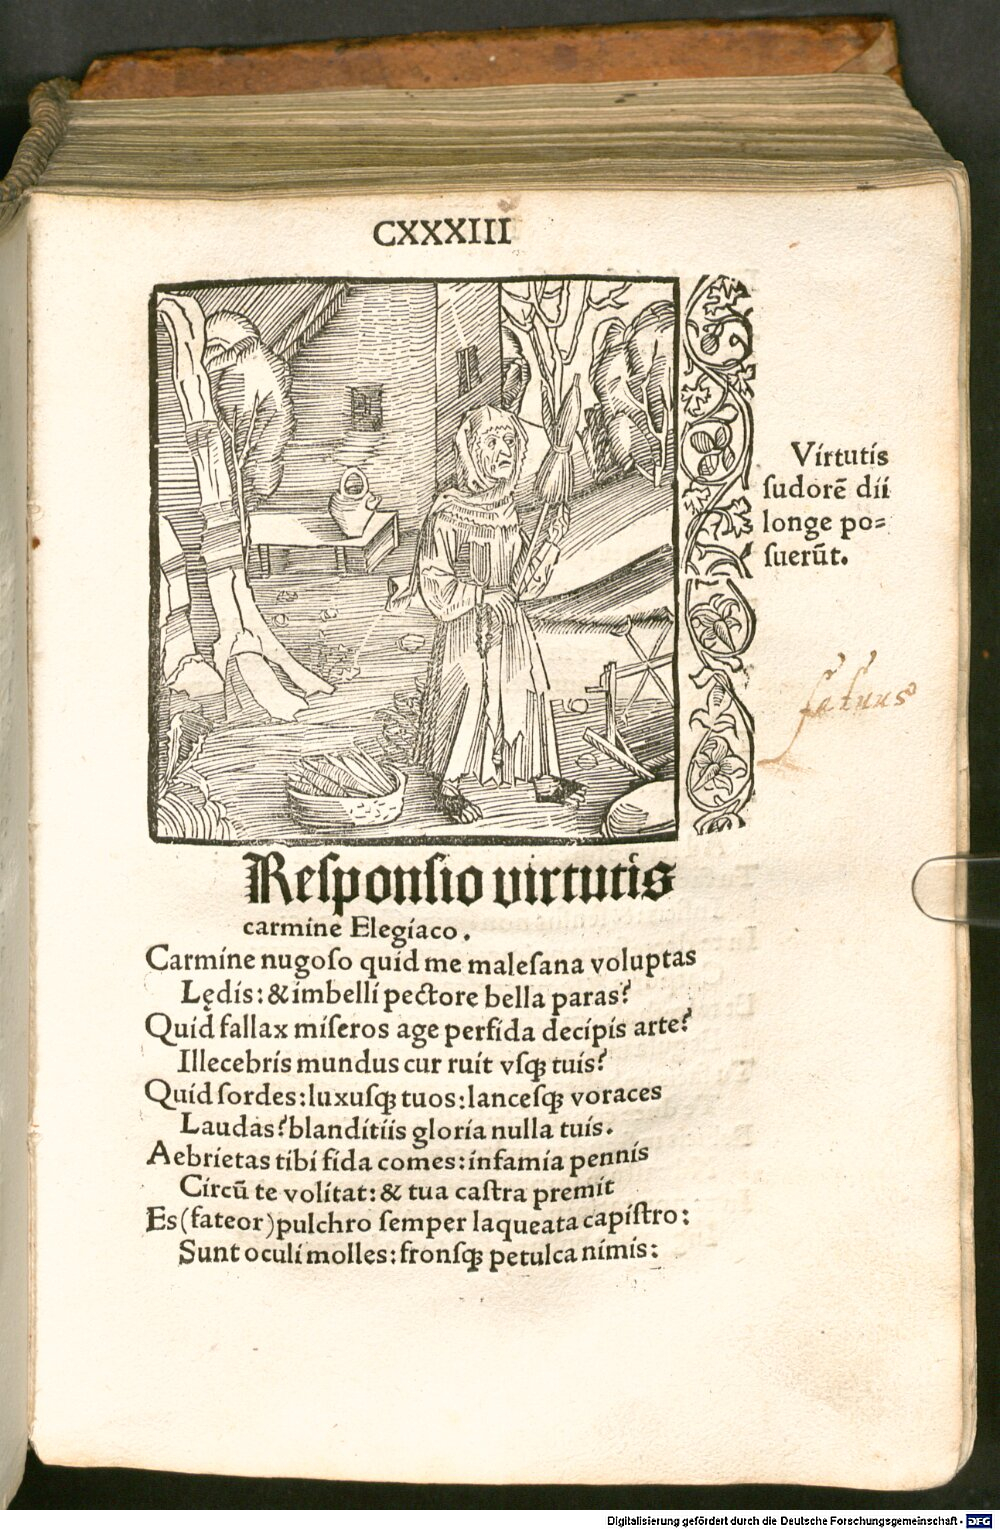 CXXXIII
Virtutis
ſudorē dii
longe po=
ſuerūt.
fatuus
Reſponſio virtutis
carmine Elegiaco.
Carmine nugoſo quid me maleſana voluptas
Lędis: & imbelli pectore bella paras?
Quid fallax miſeros age perfida decipis arte?
Illecebris mundus cur ruit vſqꝫ tuis?
Quid ſordes: luxuſqꝫ tuos: lanceſqꝫ voraces
Laudas? blanditiis gloria nulla tuis.
Aebrietas tibi fida comes: infamia pennis
Circū te volitat: & tua caſtra premit
Es (fateor) pulchro ſemper laqueata capiſtro:
Sunt oculi molles: fronſqꝫ petulca nimis:
Digitalisierung gefördert durch die Deutsche Forschungsgemeinschaft - DFG